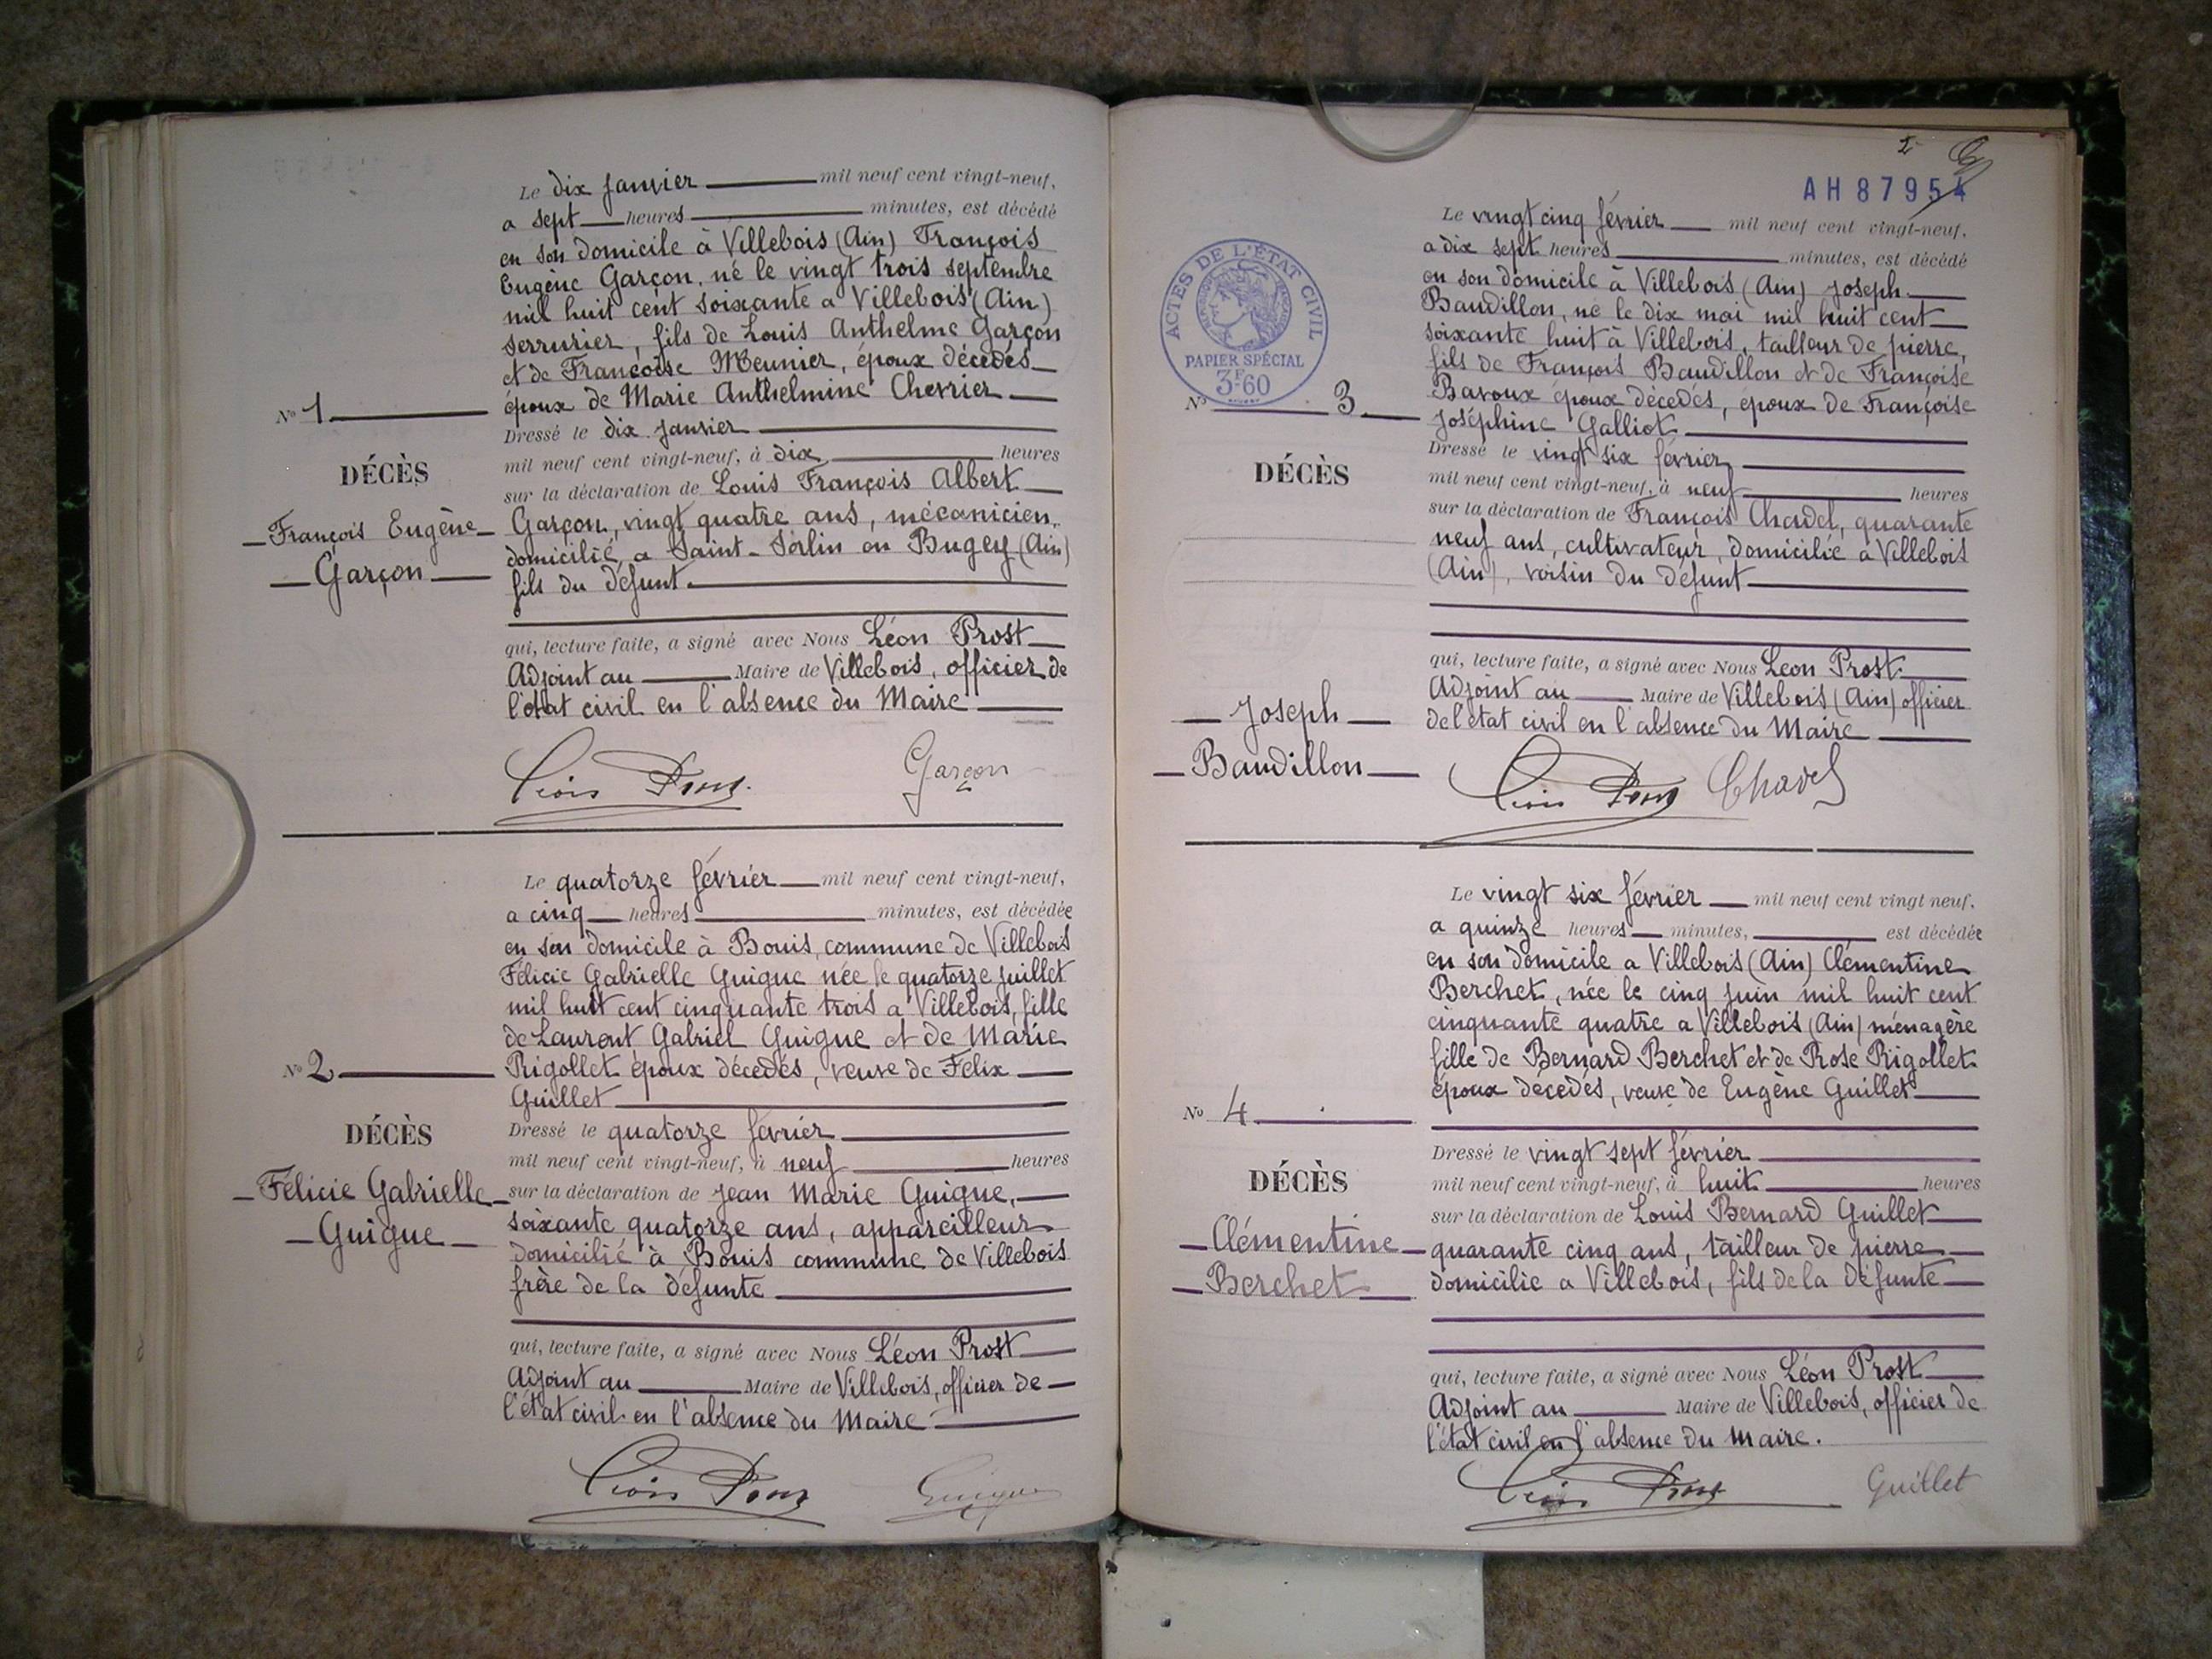 Le dix janvier mil neuf cent vingt-neuf,
a sept heures minutes, est décédé
en son domicile à Villebois (Ain) François
Eugène Garçon, né le vingt trois septembre
mil huit cent soixante a Villebois (Ain)
serrurier, fils de Louis Anthelme Garçon
et de Françoise Meunier, époux décedés
époux de Marie Anthelmine Chevrier
Nº 1
Dressé le dix janvier
mil neuf cent vingt-neuf, à dix heures
DÉCÈS
sur la déclaration de Louis François Albert
François Eugène
Garçon
Garçon, vingt quatre ans, mécanicien,
domicilié a Saint-Sorlin en Bugey (Ain)
fils du défunt.
qui, lecture faite, a signé avec Nous Léon Prost
Adjoint au Maire de Villebois, officier de
l'état civil en l'absence du Maire
Léon Prost
Garçon
Le quatorze février mil neuf cent vingt-neuf,
a cinq heures minutes, est décédée
en son domicile à Bouis, commune de Villebois
Félicie Gabrielle Guigue née le quatorze juillet
mil huit cent cinquante trois a Villebois, fille
de Laurent Gabriel Guigue et de Marie
Rigollet époux décedés, veuve de Félix
Guillet
Nº 2
Dressé le quatorze février
mil neuf cent vingt-neuf, à neuf heures
DÉCÈS
Félicie Gabrielle
Guigue
sur la déclaration de Jean Marie Guigue,
soixante quatorze ans, appareilleur
domicilié à Bouis commune de Villebois
frère de la défunte
qui, lecture faite, a signé avec Nous Léon Prost
Adjoint au Maire de Villebois, officier de
l'état civil en l'absence du Maire
Léon Prost
Guigue
2
AH 87954
ACTES DE L'ÉTAT CIVIL
PAPIER SPÉCIAL
3F.60
Le vingt cinq février mil neuf cent vingt-neuf,
a dix sept heures minutes, est décédé
en son domicile à Villebois (Ain) Joseph
Baudillon, né le dix mai mil huit cent
soixante huit à Villebois, tailleur de pierre,
fils de François Baudillon et de Françoise
Bavoux époux décedés, époux de Françoise
Joséphine Galliot
Nº 3
Dressé le vingt six février
mil neuf cent vingt-neuf, à neuf heures
DÉCÈS
sur la déclaration de François Chavel, quarante
neuf ans, cultivateur, domicilié a Villebois
(Ain), voisin du défunt
qui, lecture faite, a signé avec Nous Léon Prost
Adjoint au Maire de Villebois (Ain) officier
de l'état civil en l'absence du Maire
Joseph
Baudillon
Léon Prost
Chavel
Le vingt six février mil neuf cent vingt neuf,
a quinze heures minutes, est décédée
en son domicile a Villebois (Ain) Clémentine
Berchet, née le cinq juin mil huit cent
cinquante quatre a Villebois (Ain) ménagère
fille de Bernard Berchet et de Rose Rigollet
époux décedés, veuve de Eugène Guillet
Nº 4
Dressé le vingt sept février
mil neuf cent vingt-neuf, à huit heures
DÉCÈS
Clémentine
Berchet
sur la déclaration de Louis Bernard Guillet
quarante cinq ans, tailleur de pierre
domicilié a Villebois, fils de la défunte
qui, lecture faite, a signé avec Nous Léon Prost
Adjoint au Maire de Villebois, officier de
l'état civil en l'absence du Maire.
Léon Prost
Guillet